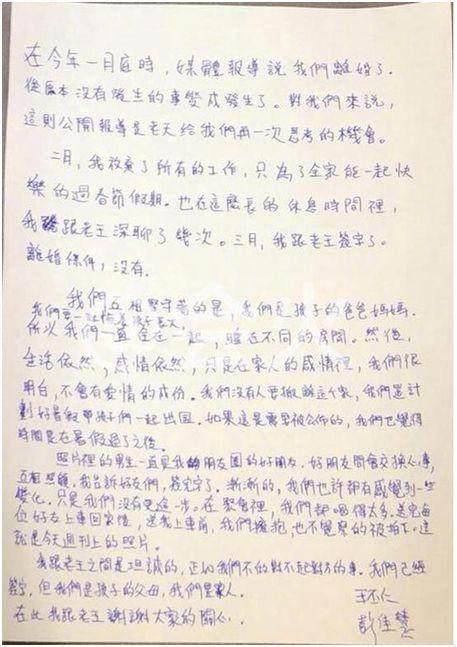 在今年一月底時，媒體報導說我們離婚了．
從原本沒有發生的事變成發生了。對我們來說，
這則公開報導是老天給我們再一次思考的機會。
二月，我放棄了所有的工作，只為了全家能一起快
樂的過春節假期．也在這麼長的休息時間裡，
我跟老王深聊了幾次。三月，我跟老王簽字了。
離婚條件，沒有．
我們互相堅守著的是，我們是孩子的爸爸媽媽．
我們要一起陪著孩子長大，
所以我們一直住在一起，睡在不同的房間。然後，
生活依然，感情依然，只是在家人的感情裡，我們很
明白，不會有愛情的成份。我們沒有人要搬離這個家，我們是計
劃好暑假帶孩子們一起出國。如果這是需要被公佈的，我們也覺得
時間是在暑假過了之後。
照片裡的男生一直是我朋友圈的好朋友．好朋友間會交換心事，
互相照顧，我告訴好友們，簽完字了．漸漸的，我們也許都有感覺到一些
變化．只是我們沒有更進一步。在聚會裡，我們都喝得太多．送完每
位好友上車回家後，送我上車前，我們擁抱，也不意外的被拍了．這
就是今天週刊上的照片。
我跟老王之間是坦誠的，正如我們不做對不起對方的事．我們已經
簽字，但我們是孩子的父母，我們是家人．
在此我跟老王謝謝大家的關心．
王丕仁
彭佳慧